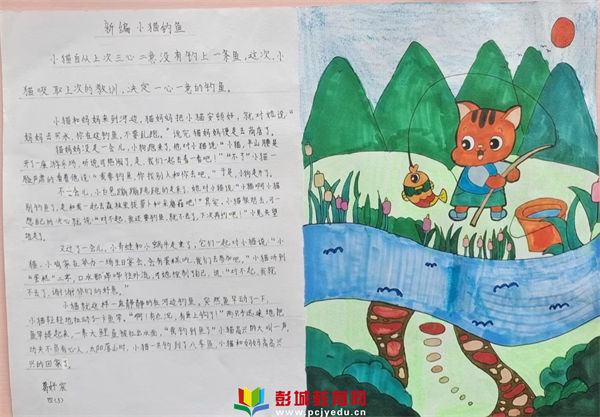 新编小猫钓鱼
小猫自从上次三心二意没有钓上一条鱼,这次,小
猫吸取上次的教训,决定一心一意的钓鱼。
小猫和妈妈来到河边,猫妈妈把小猫安顿好,就对她说"
妈妈去买水,你在这钓鱼,不要乱跑。"说完猫妈妈便是去商店了。
猫妈妈没走一会儿,小狗跑来了,他对小猫说:"小猫,半山腰是
开了一座游乐场,听说可热闹了,是,我们一起去看一看吧!""不了"小猫一
脸严肃的看着他说:"我要钓鱼,你找别人和你去吧。"于是,小狗走了。
不一会儿,小白兔蹦蹦跳跳的走来了,她对小猫说:"小猫啊小猫
别钓鱼了,是和我一起去森林里拔萝卜和采蘑菇吧!"其它,小猫很想去,可一
想自己的决心就说:"对不起,我还要钓鱼,就不去了,下次再约吧!"小兔失望
地走了。
又过了一会儿,小青蛙和小鹅冲走来了,它们一起对小猫说:"小
猫,小鸡家在举办一场生日宴会,会有蛋糕吃,我们去参加吧。"小猫听到
"蛋糕"二字,口水都哗哗往外流,可她控制自己,说:"对不起,我就
不去了,谢谢你们的好意。"
小猫就这样一直静静的在河边钓鱼,突然鱼竿动了一下,
小猫轻轻地拉动了一下鱼竿,"啊!有点沉,有鱼上钩了!"两只手迅速地把
鱼竿提起来,一条大鲤鱼被拉出水面,"我钓到鱼了"小猫高兴的大叫一声,
功夫不负有心人,太阳落山时,小猫一共钓到了八条鱼,小猫和妈妈高高兴
兴的回家了。
四(3)
彭城教育网
www.pcjyedu.cn